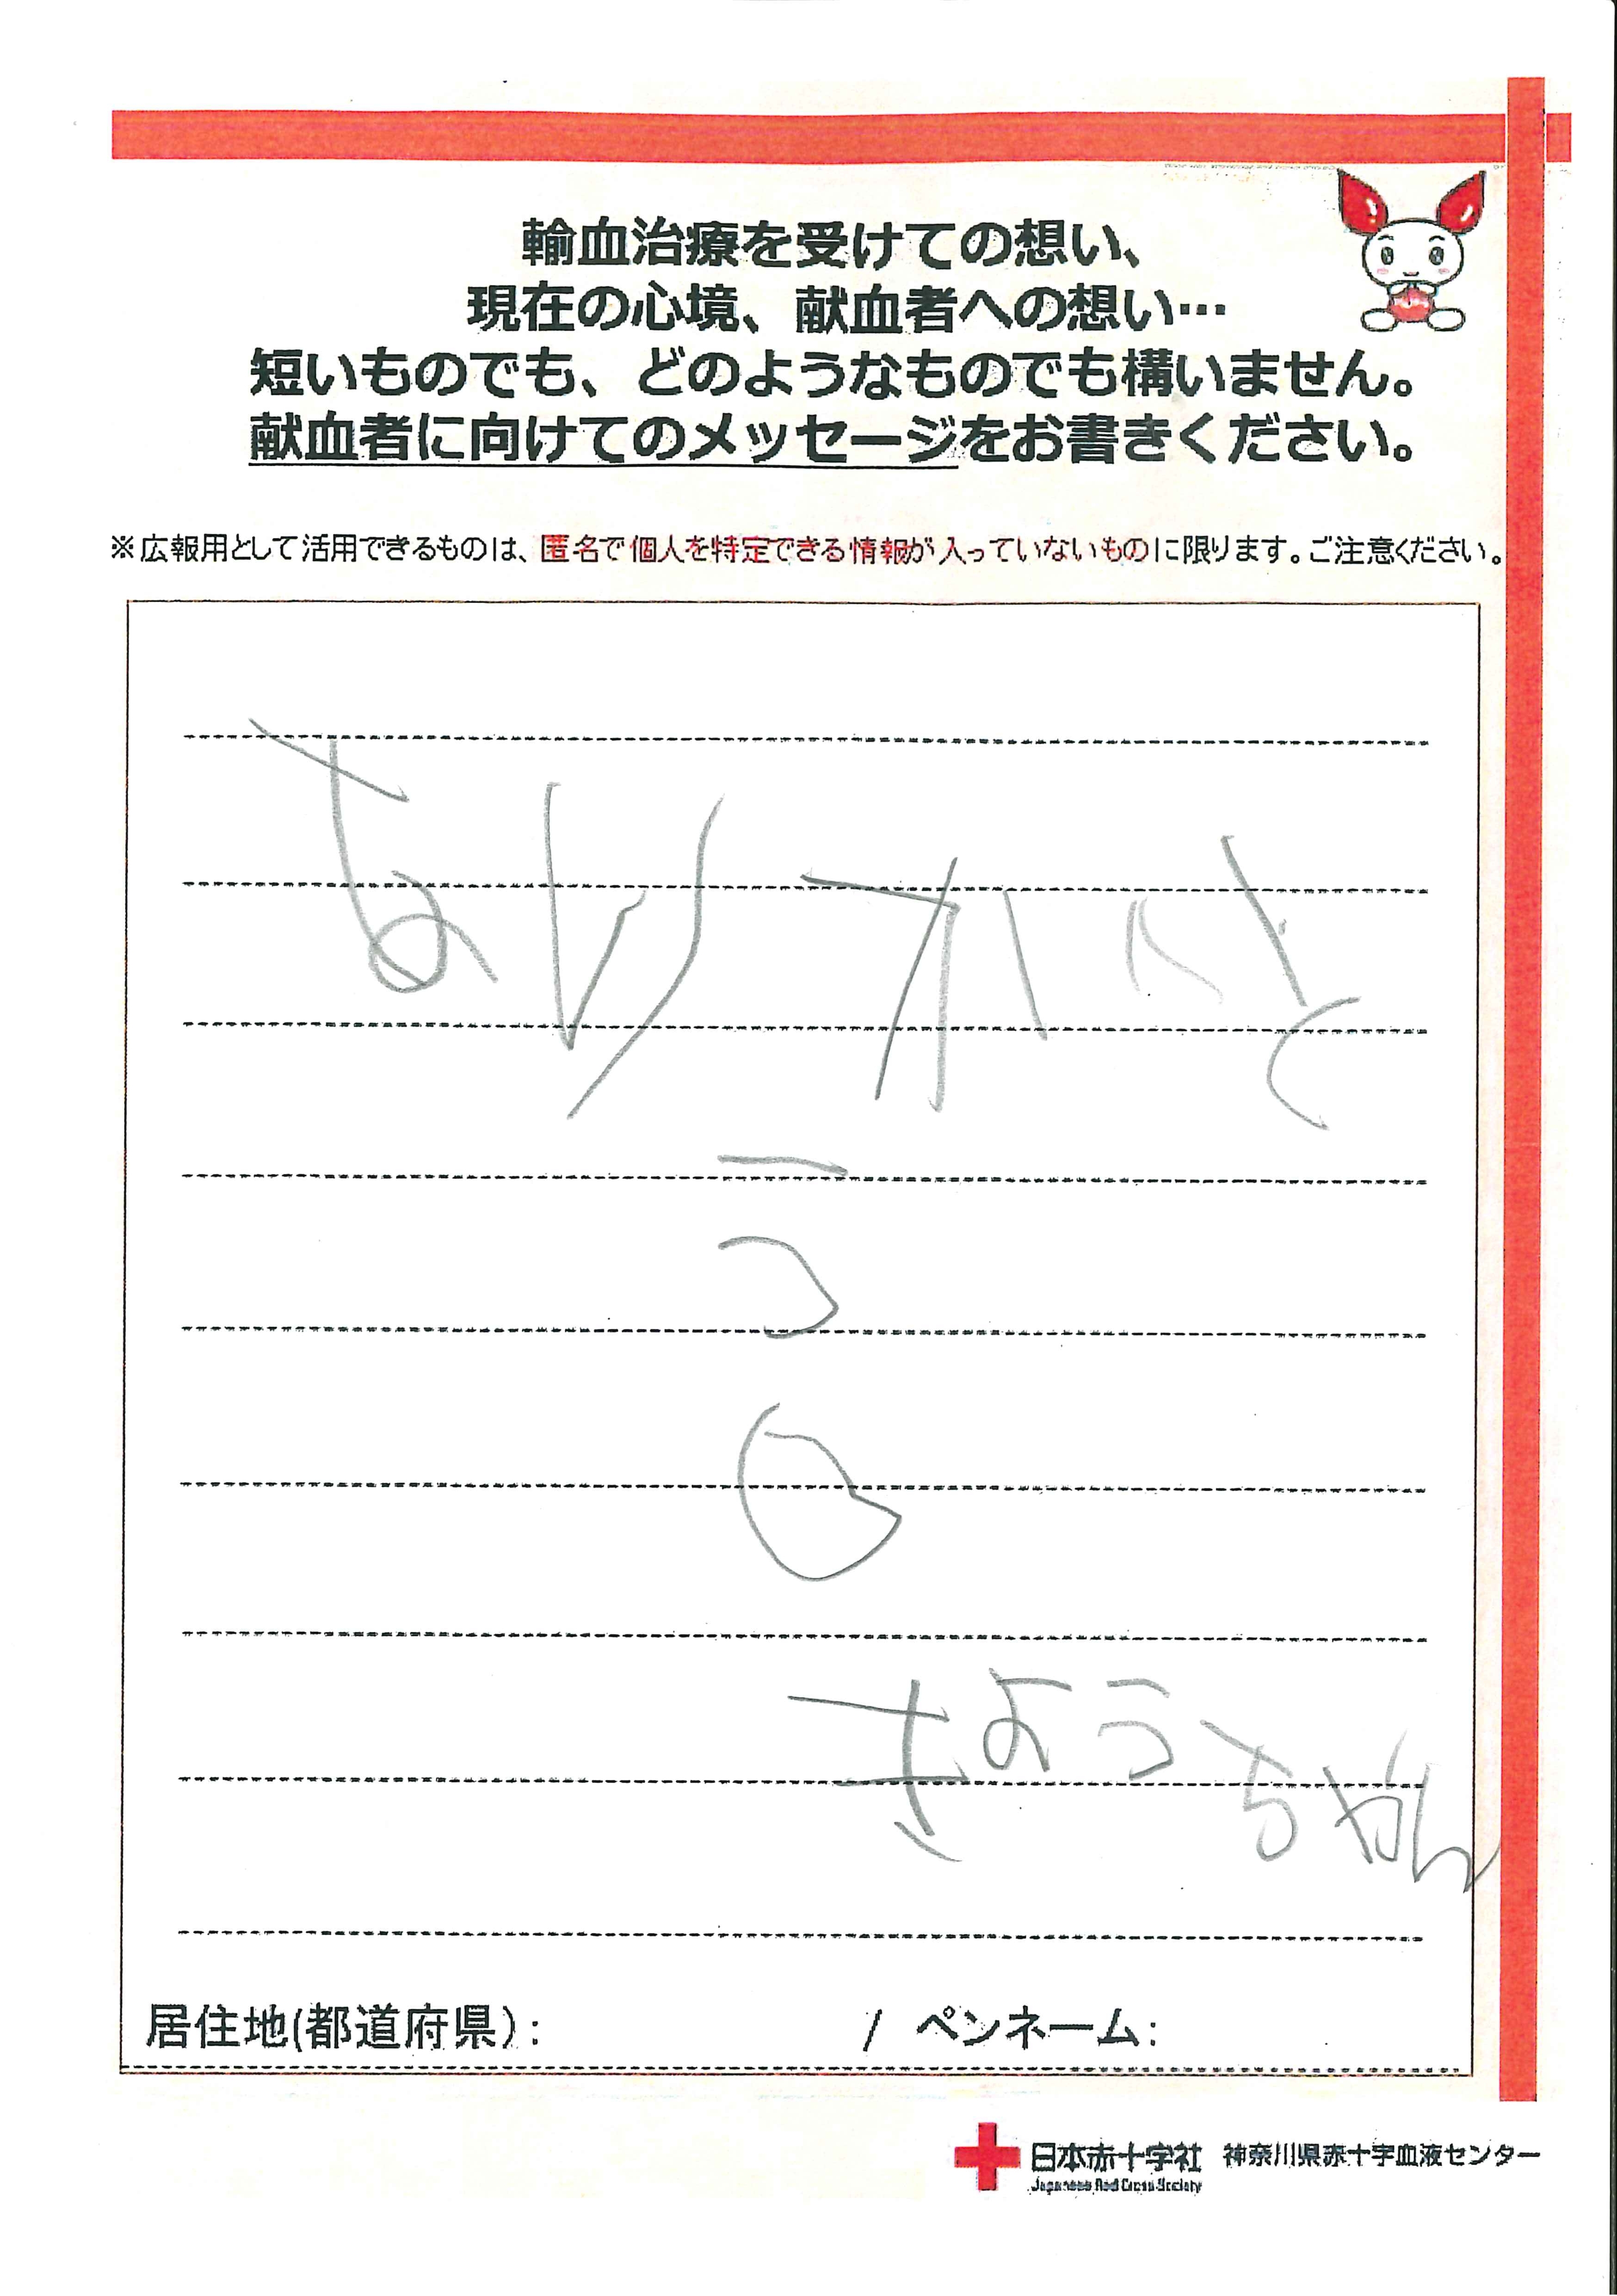 輸血治療を受けての想い、
現在の心境、献血者への想い…
短いものでも、どのようなものでも構いません。
献血者に向けてのメッセージをお書きください。
※広報用として活用できるものは、匿名で個人を特定できる情報が入っていないものに限ります。ご注意ください。
ありがと
う
。
きようちゃん
居住地(都道府県)： / ペンネーム：
日本赤十字社 神奈川県赤十字血液センター
Japanese Red Cross Society